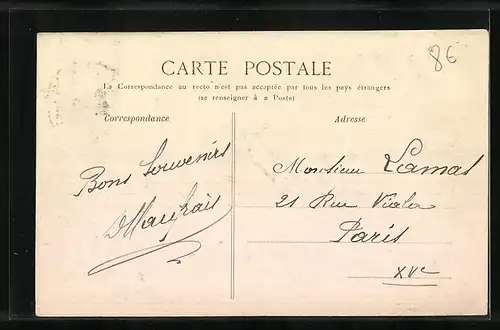 86
CARTE POSTALE
La Correspondance au recto n'est pas acceptée par tous les pays étrangers
(se renseigner à a Poste)
Correspondance
Adresse
Bons Souvenirs
Monsieur Lamas
21 Rue Viala
Paris
XVe